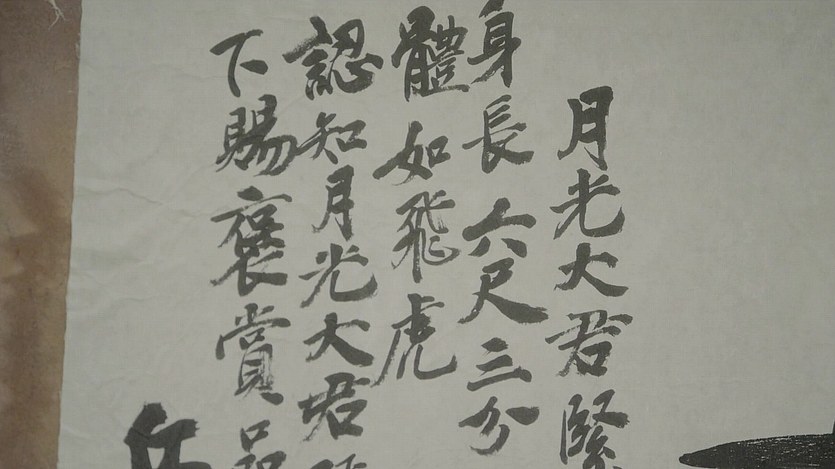 月光大君緊
身長六尺三分
體如飛虎
認知月光大君
下賜褒賞品